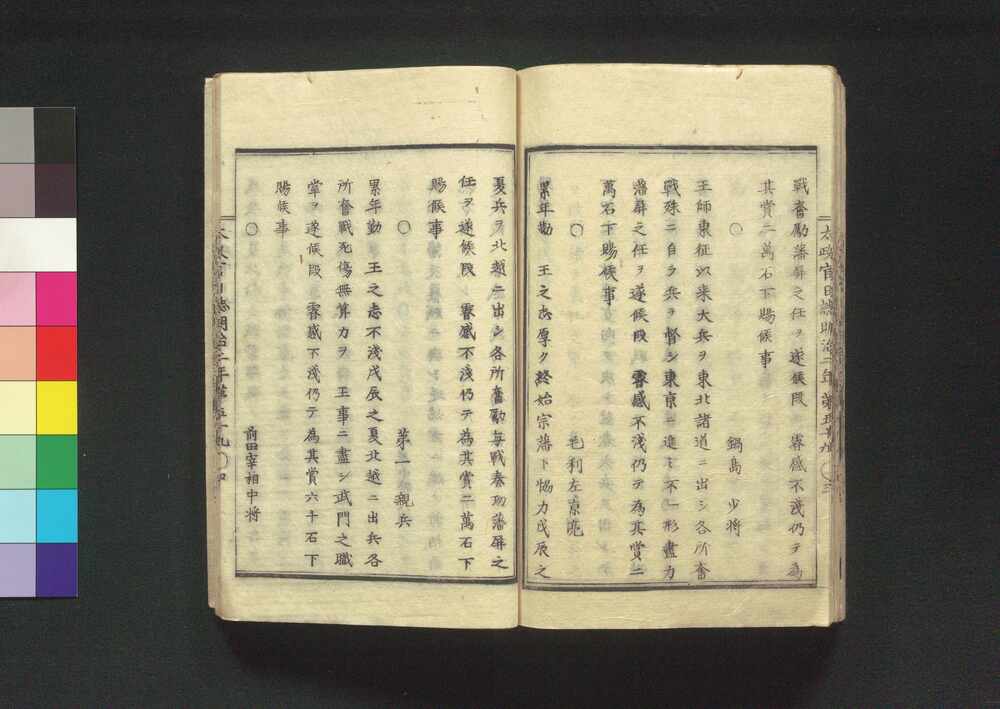 戰奮勵藩屏之任ヲ遂候段　叡感不淺仍テ為
其賞二萬石下賜候事
○　鍋島　少将
王師東征以来大兵ヲ東北諸道ニ出シ各所奮
戰殊ニ自ラ兵ヲ督シ東京ニ進ミ不一形盡力
藩屏之任ヲ遂候段　叡感不淺仍テ為其賞二
萬石下賜候事
○　毛利左京亮
累年勤　王之志厚ク終始宗藩ト恊力戊辰之
夏兵ヲ北越ニ出シ各所奮勵毎戰奏功藩屏之
任ヲ遂候段　叡感不淺仍テ為其賞二萬石下
賜候事
○　第一親兵
累年勤　王之志不淺戊辰之夏北越ニ出兵各
所奮戰死傷無算力ヲ　王事ニ盡シ武門之職
掌ヲ遂候段　叡感不淺仍テ為其賞六千石下
賜候事
○　前田宰相中将
太政官日誌明治二年第五十九　○三
太政官日誌明治二年第五十九　○四